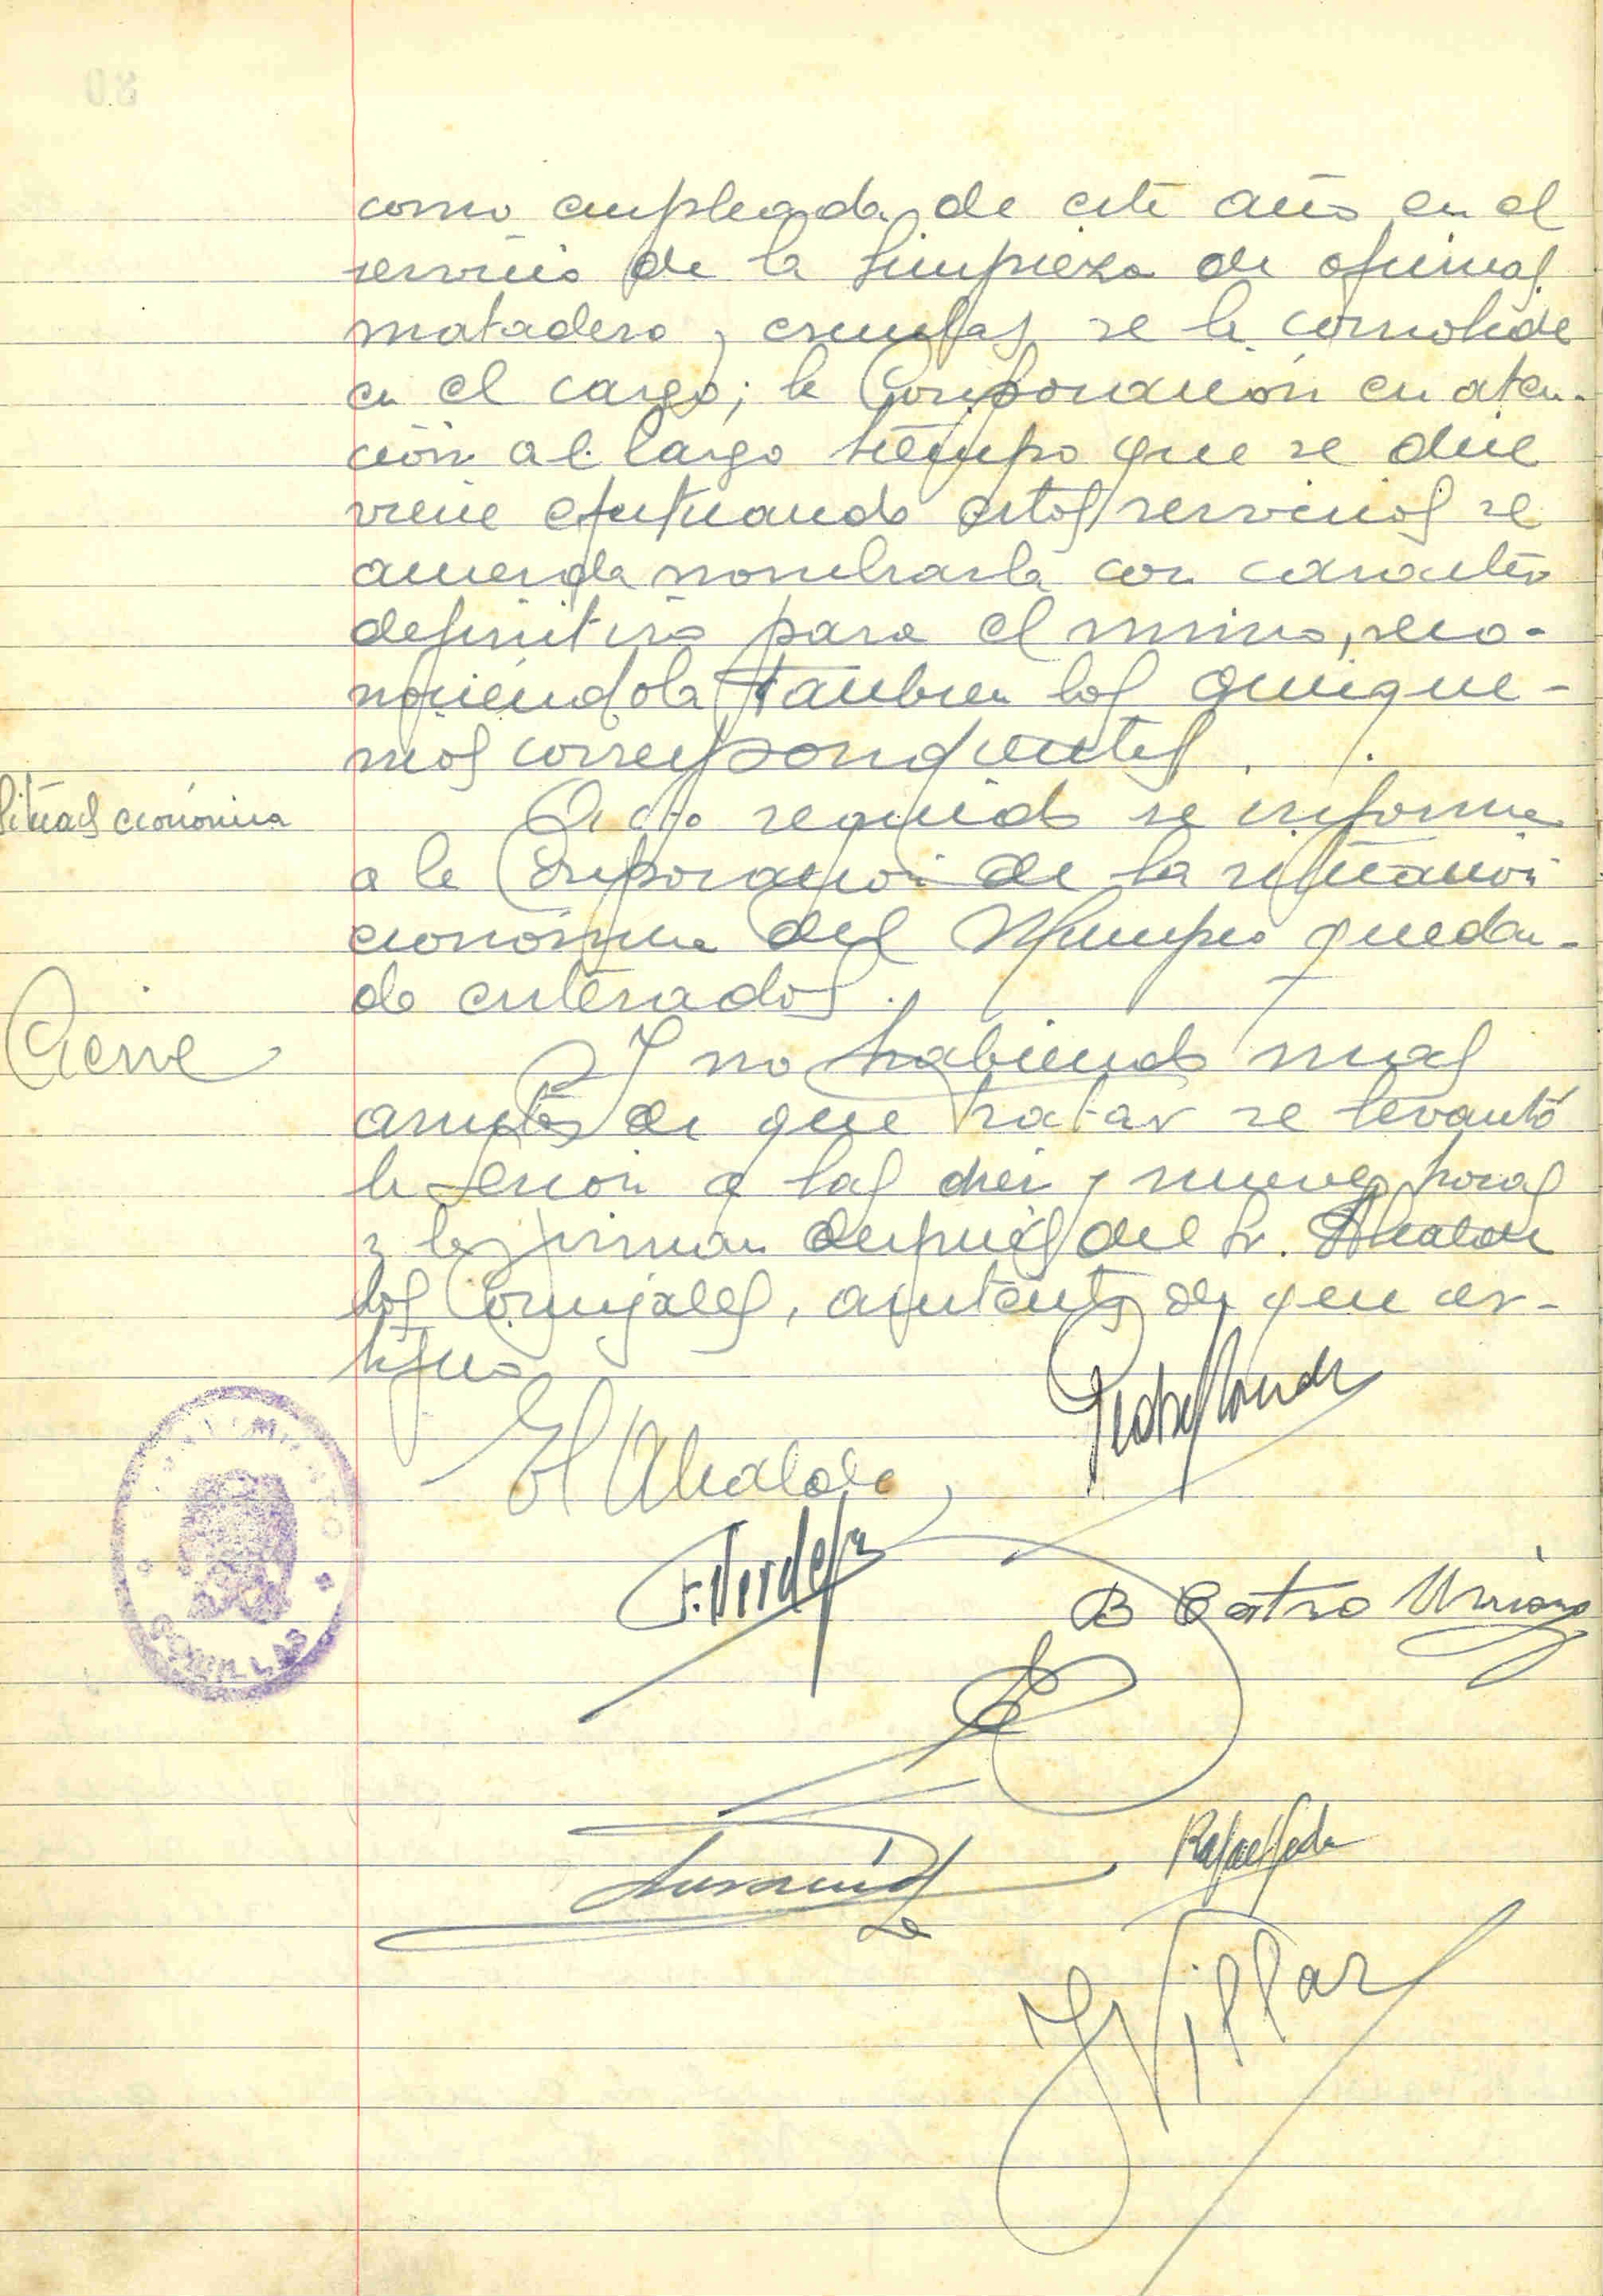 como empleada de este año en el
servicio de la limpieza de oficinas
matadero y escuelas se le consolide
en el cargo; la Corporación en aten-
ción al largo tiempo que se dice
viene efectuando estos servicios se
acuerda nombrarla con caracter
definitivo para el mismo, reco-
nociendola tambien los quinque-
nios correspondientes.
Situacs económica
Acto seguido se informa
a la Corporación de la situación
económica del Municipio quedan-
do enterados.
Cierre
Y no habiendo mas
asuntos de que tratar se levantó
la sesión a las diez y nueve horas
y la firman después del Sr. Alcalde
los Concejales, asistentes de que cer-
tifico
El Alcalde
F. Verdeja
B Castro Urriaga
Rafael
J Villar
COMILLAS